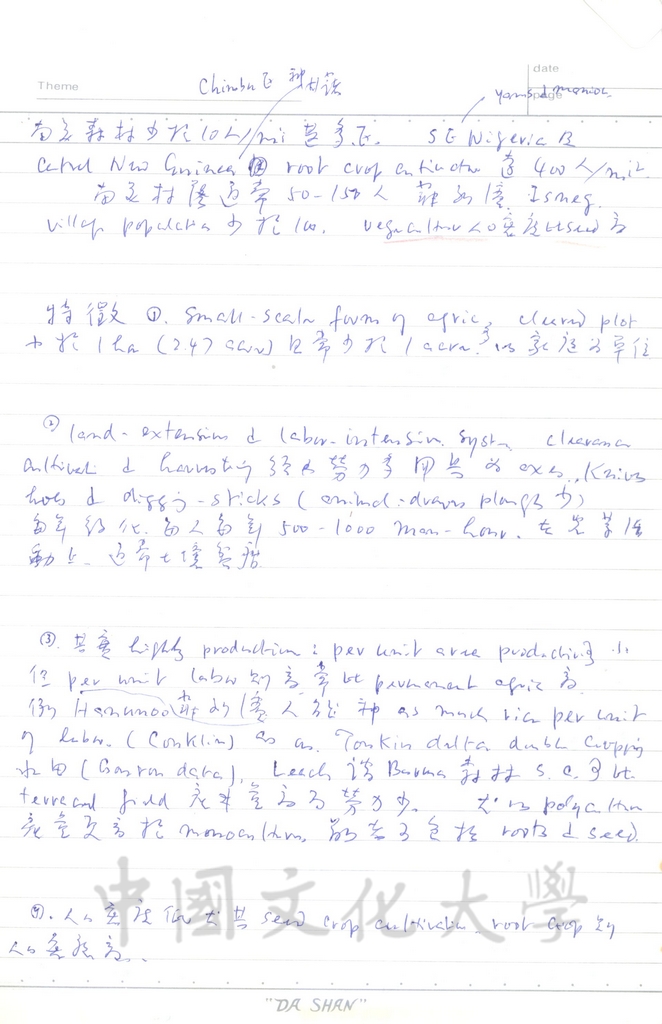 Theme
date
page
Chimbu 區 種甘藷
yams d manioc
南美森林少於10人/mi² 甚多區. SE Nigeria 及
Central New Guinea root crop cultivation 達 400人/mi².
南美村落通常 50-150人 Isneg.
village population 少於 100. vegeculture 人口密度比 seed 高
特徵 ①. small-scale form of agric, cleared plot
少於 1 ha (2.47 acres) 且常少於 1 acre. 以家庭為單位
② land-extensive d labor-intensive system clearance
cultivat d harvesting 勞力 用具 為 axes, knives
hoes d digging-sticks (animal-drawn plough 少)
每年 每人每年 500-1000 man-hour. 在農業活
動上. 通常土壤
③. 其實 highly production: per unit area productivity 小
但 per unit labor 則高, 常比 permanent agric 高
例 Hanunoo 人能種 as much rice per unit
of labor. (Conklin) as on Tonkin delta double cropping
水田 (Gourou data), Leach 談 Burma 森林 s. c. 可比
terraced field 產量高而勞力少. polyculture
產量更高於 monoculture, 前者可包括 roots d seed.
④. 人口密度低 尤其 seed crop cultivation. root crop 則
人口密度高.
中國文化大學
"DA SHAN"